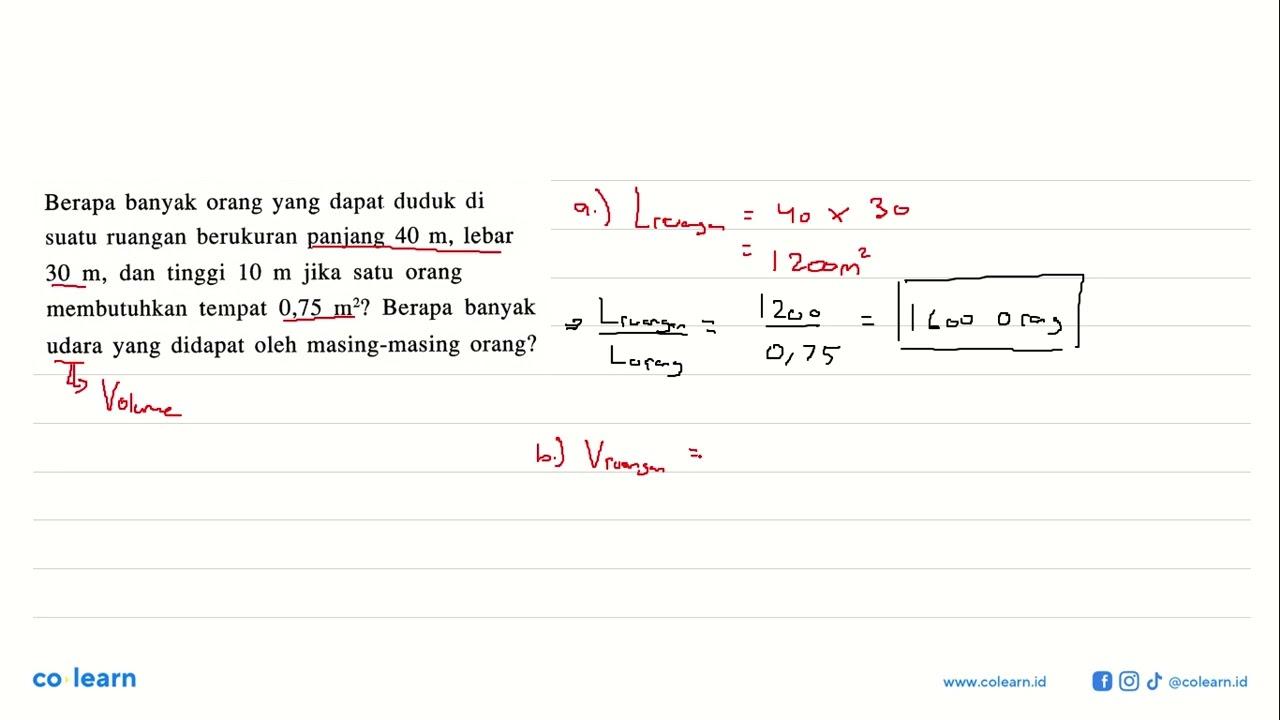 Berapa banyak orang yang dapat duduk di
suatu ruangan berukuran panjang 40 m, lebar
30 m, dan tinggi 10 m jika satu orang
membutuhkan tempat 0,75 m²? Berapa banyak
udara yang didapat oleh masing-masing orang?
Volume
a.) Lruangan = 40 x 30
= 1200m²
⇒ Lruangan / Lorang = 1200 / 0,75 = 1600 orang
b.) Vruangan =
co learn
www.colearn.id
@colearn.id